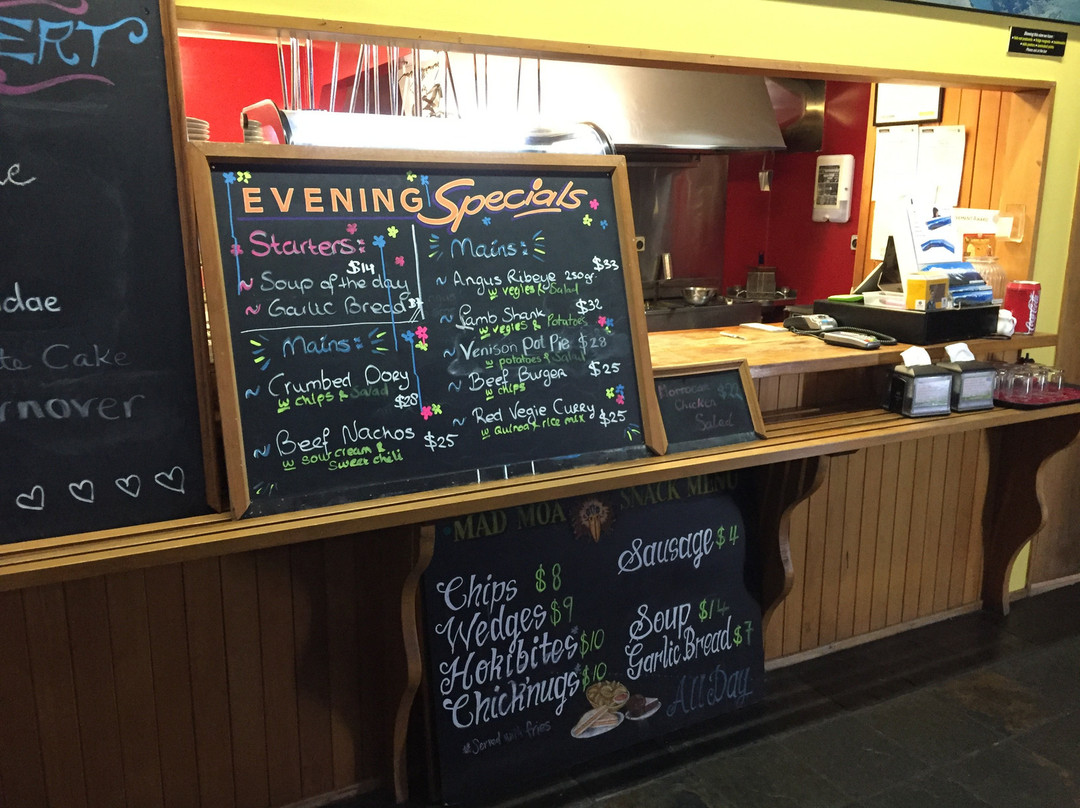 ERT
dae
te Cake
rnover
EVENING Specials
Starters:
$14
~ Soup of the day
~ Garlic Bread $7
Mains:
~ Crumbed Dory
w chips & Salad
$28
~ Beef Nachos $25
w sour cream &
sweet chili
Mains:
~ Angus Ribeye 250gr. $33
w vegies & Salad
~ Lamb Shank $32
w vegies & Potatoes
~ Venison Pot Pie $28
w potatoes & Salad
~ Beef Burger $25
w chips
~ Red Vegie Curry $25
w Quinoa + rice mix
Morroccan
Chicken
Salad
MAD MOA SNACK MENU
Chips $8
Wedges $9
Hokibites* $10
Chick'nugs* $10
*Served with fries
Sausage $4
Soup $14
Garlic Bread $7
All Day